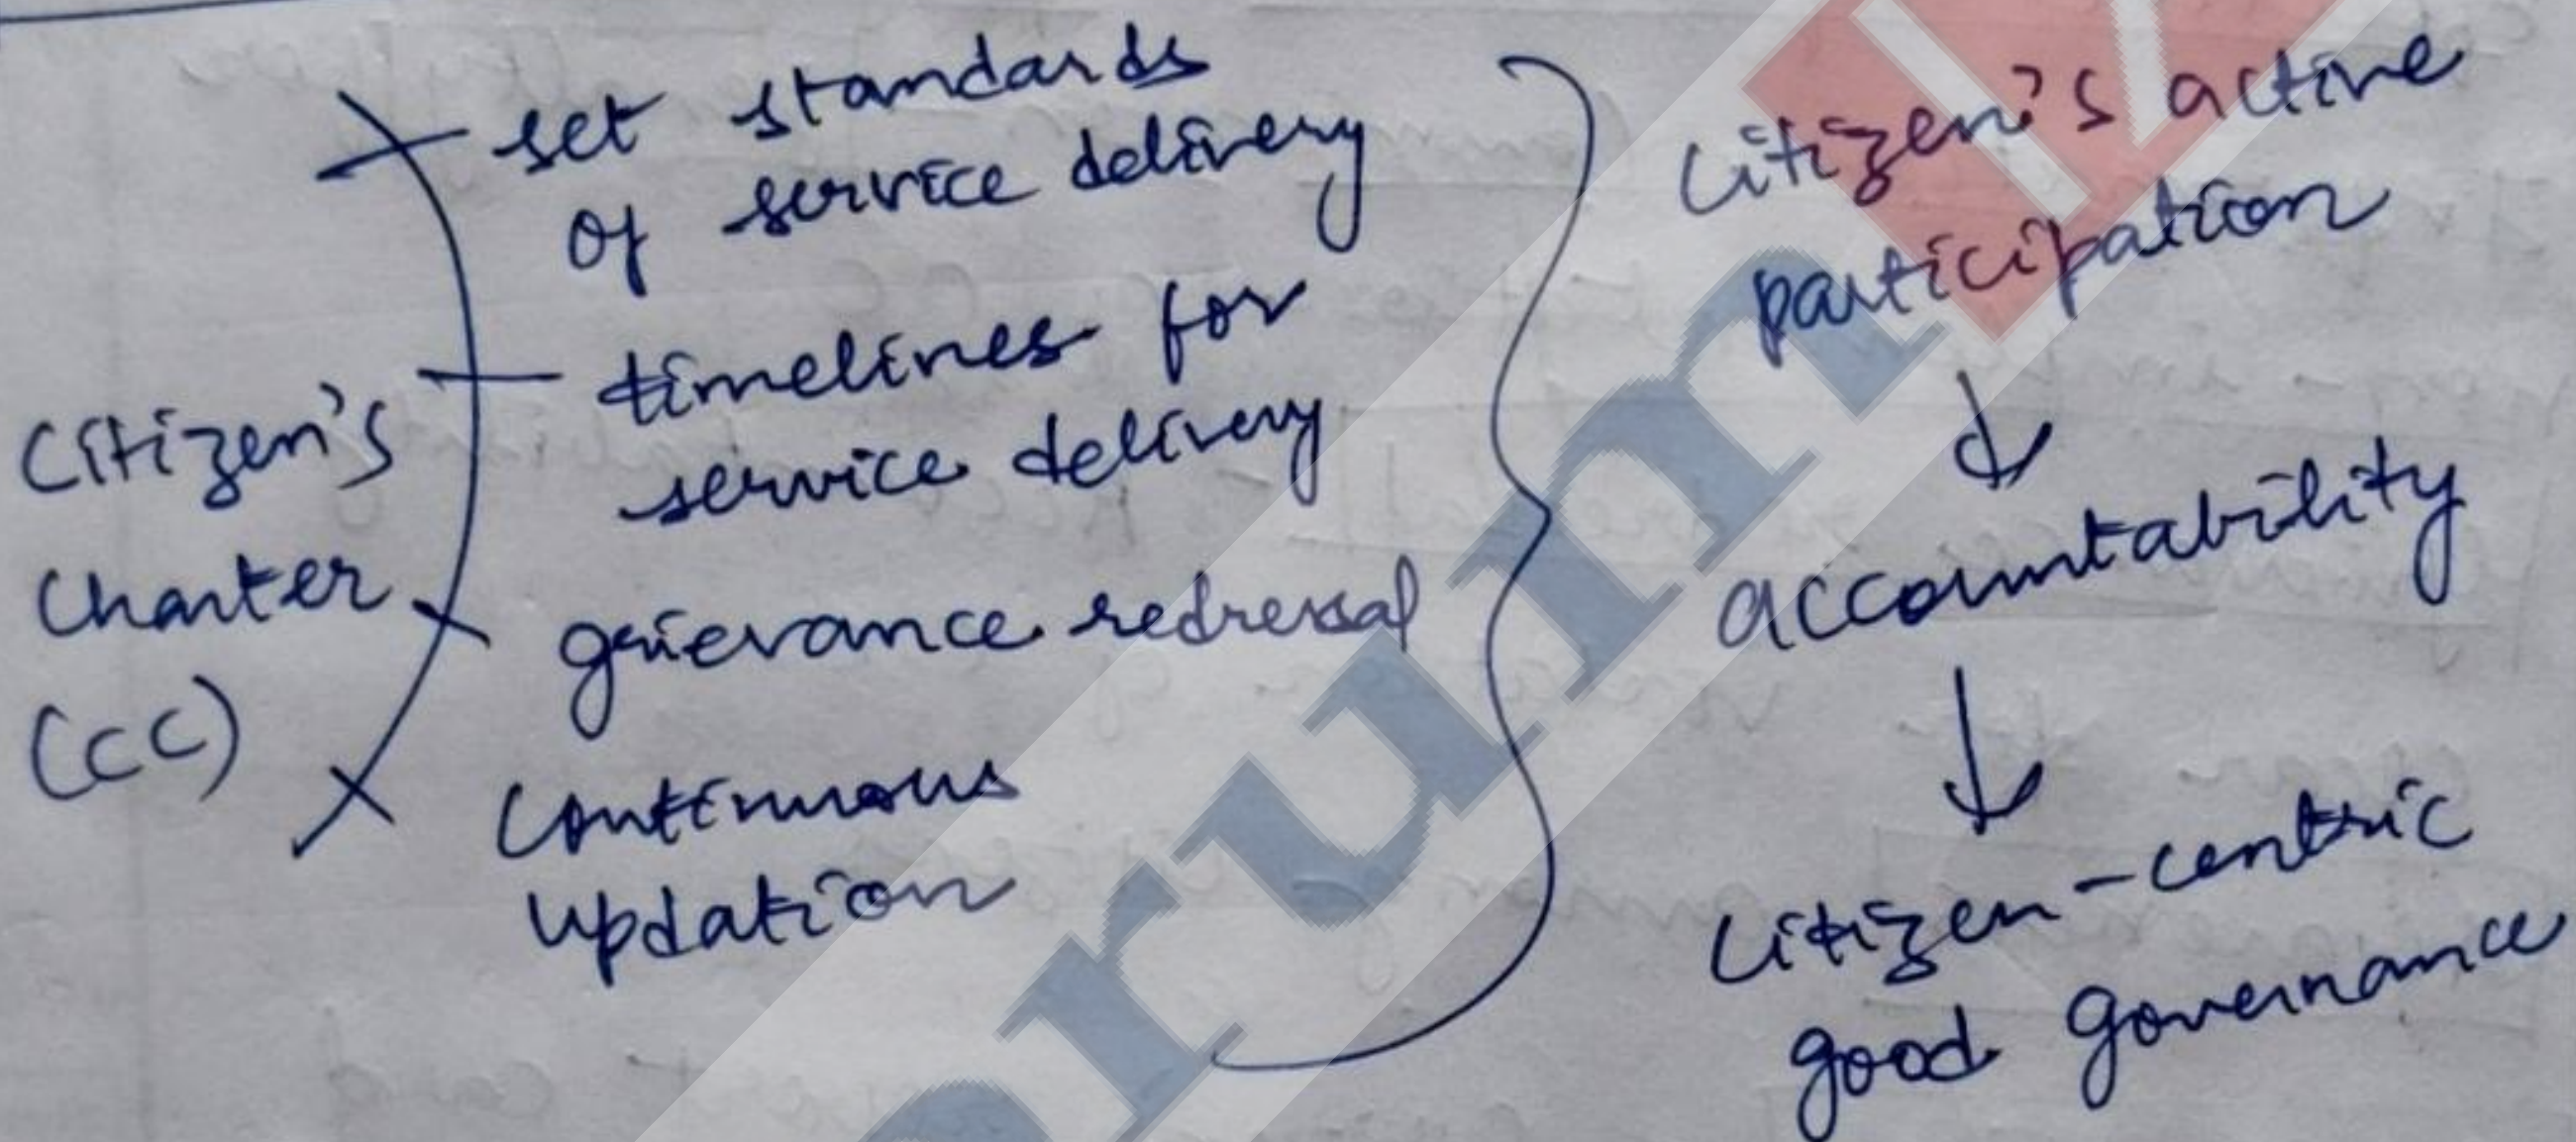 Citizen's
Charter
(CC)
set standards
of service delivery
timelines for
service delivery
grievance redressal
Continuous
updation
Citizen's active
participation
accountability
Citizen-centric
good governance